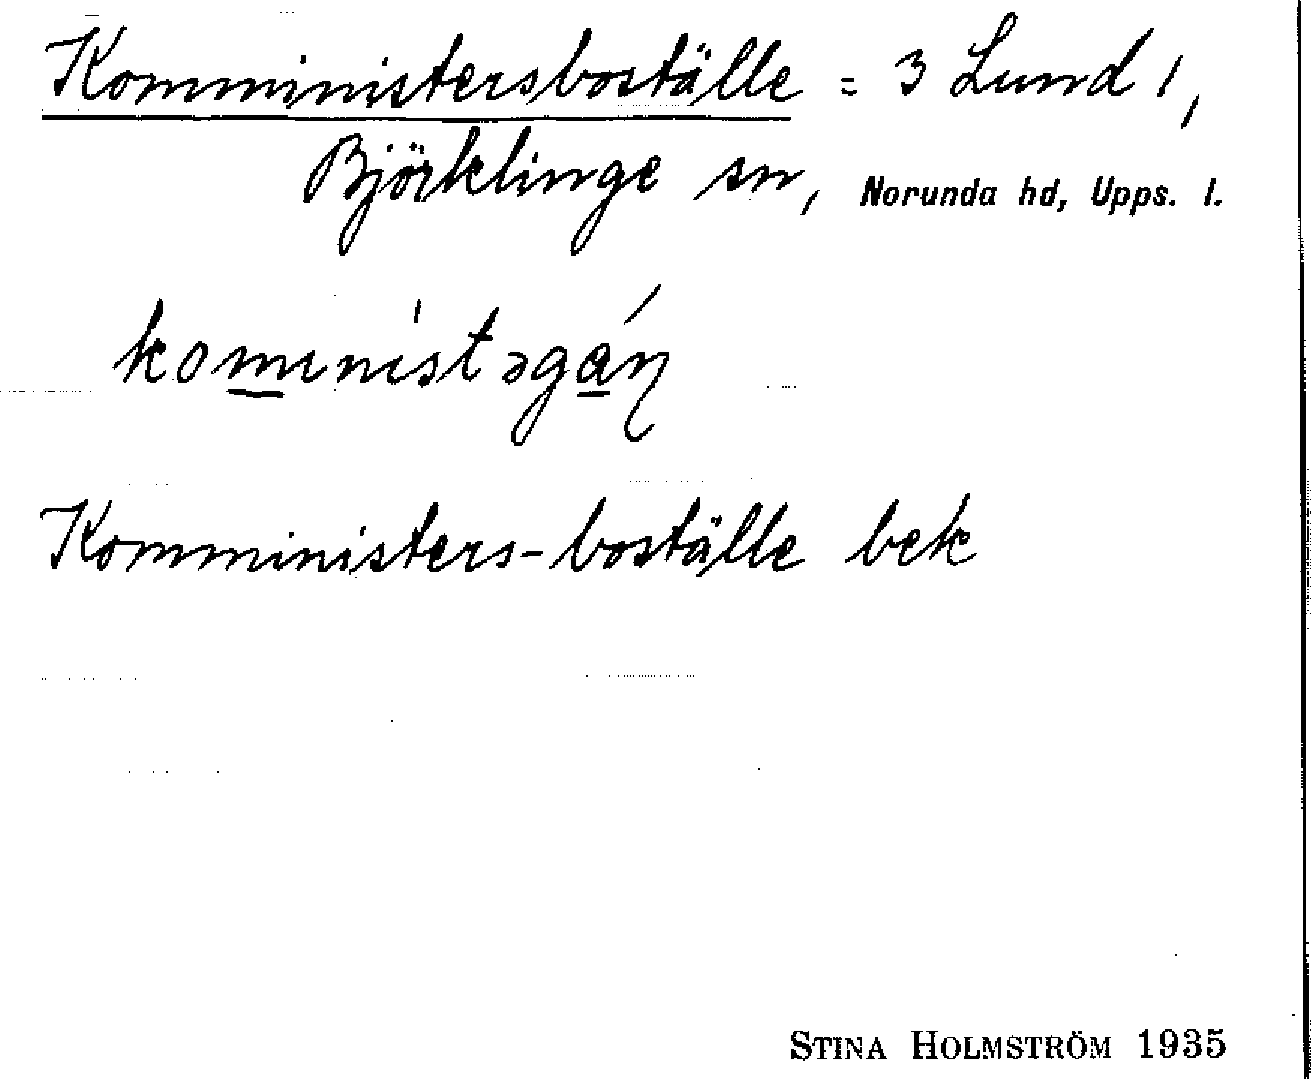 Komministersboställe = 3 Lund 1,
Björklinge sn, Norunda hd, Upps. l.
komınıstəgáɳ
Komministers-boställe bek
STINA HOLMSTRÖM 1935